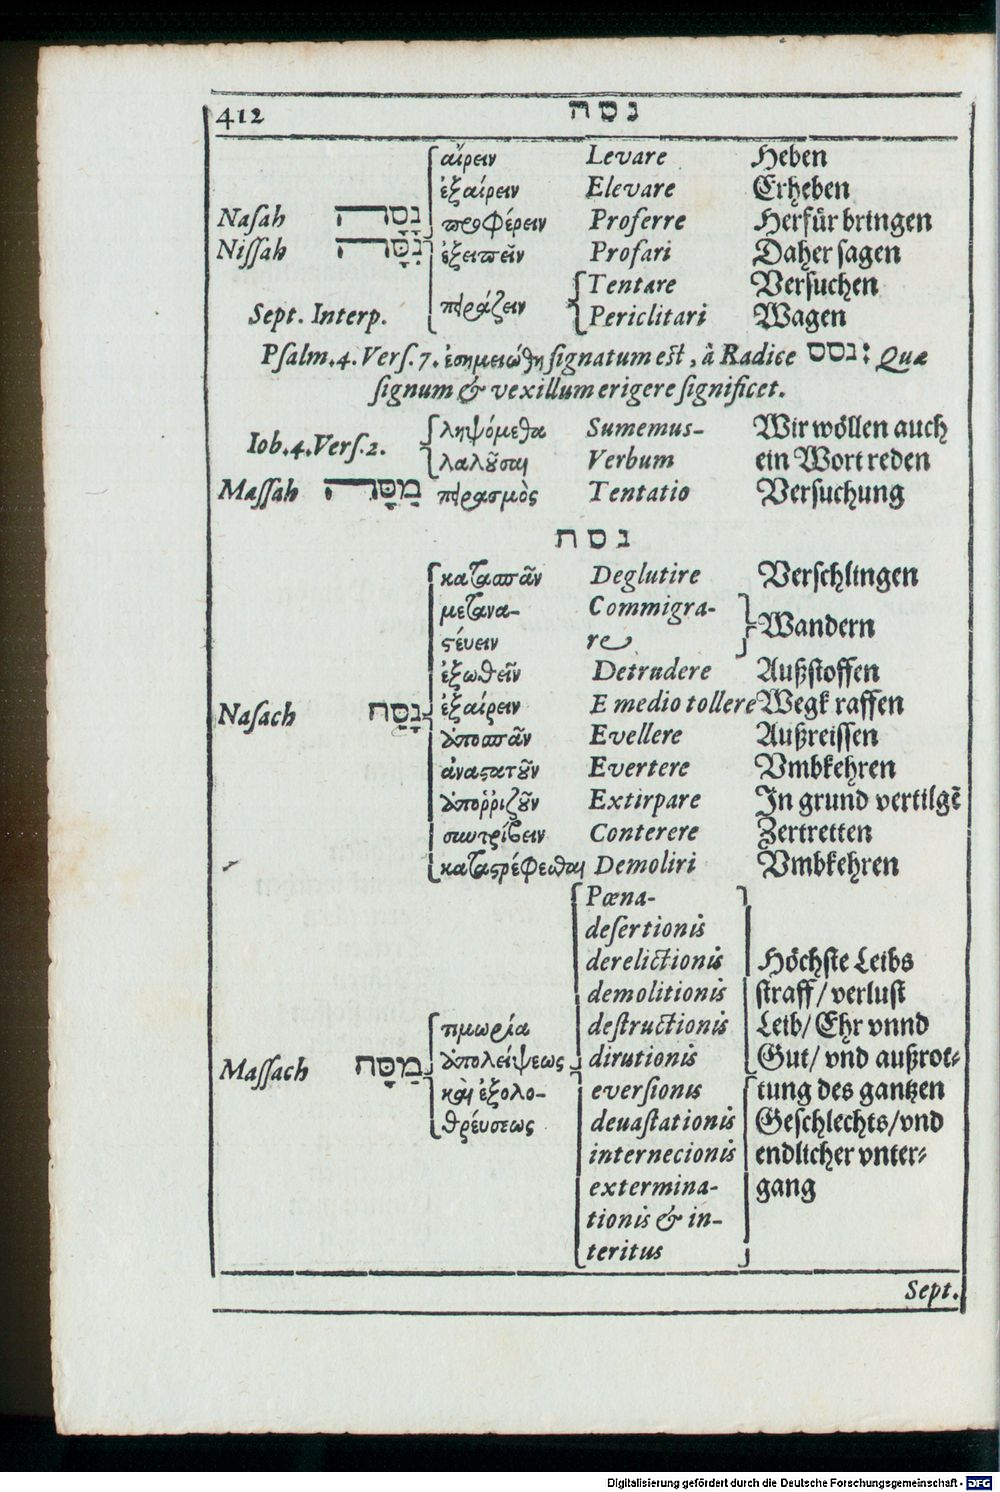 412 נסה
αἴρειν Levare Heben
ἐξαίρειν Elevare Erheben
Naſah נָסָה προφέρειν Proferre Herfür bringen
Niſſah נִסָּה ἐξειπεῖν Profari Daher ſagen
Tentare Verſuchen
Sept. Interp. πειράζειν Periclitari Wagen
Pſalm. 4. Verſ. 7. ἐσημειώθη ſignatum eſt, à Radice נסס: Quæ
ſignum & vexillum erigere ſignificet.
ληψόμεθα Sumemus- Wir wöllen auch
Iob. 4. Verſ. 2. λαλῆσαι Verbum ein Wort reden
Maſſah מַסָּה πειρασμὸς Tentatio Verſuchung
נסח
καταπᾶν Deglutire Verſchlingen
μετανα- Commigra-
ϛέυειν re Wandern
ἐξωθεῖν Detrudere Außſtoſſen
Naſach נָסַח ἐξαίρειν E medio tollere Wegk raffen
ἀποσπᾶν Evellere Außreiſſen
ἀναϛατοῦν Evertere Vmbkehren
ἀποῤῥιζοῦν Extirpare In grund vertilgẽ
συντρίβειν Conterere Zertretten
καταϛρέφεσθαι Demoliri Vmbkehren
Pœna-
deſertionis
derelictionis Höchſte Leibs
demolitionis ſtraff/ verluſt
τιμωρία deſtructionis Leib/ Ehr vnnd
Maſſach מַסָּח ἀπολείψεως dirutionis Gut/ vnd außrot-
καὶ ἐξολο- everſionis tung des gantzen
θρέυσεως deuaſtationis Geſchlechts/ vnd
internecionis endlicher vnter-
extermina- gang
tionis & in-
teritus
Sept.
Digitalisierung gefördert durch die Deutsche Forschungsgemeinschaft - DFG